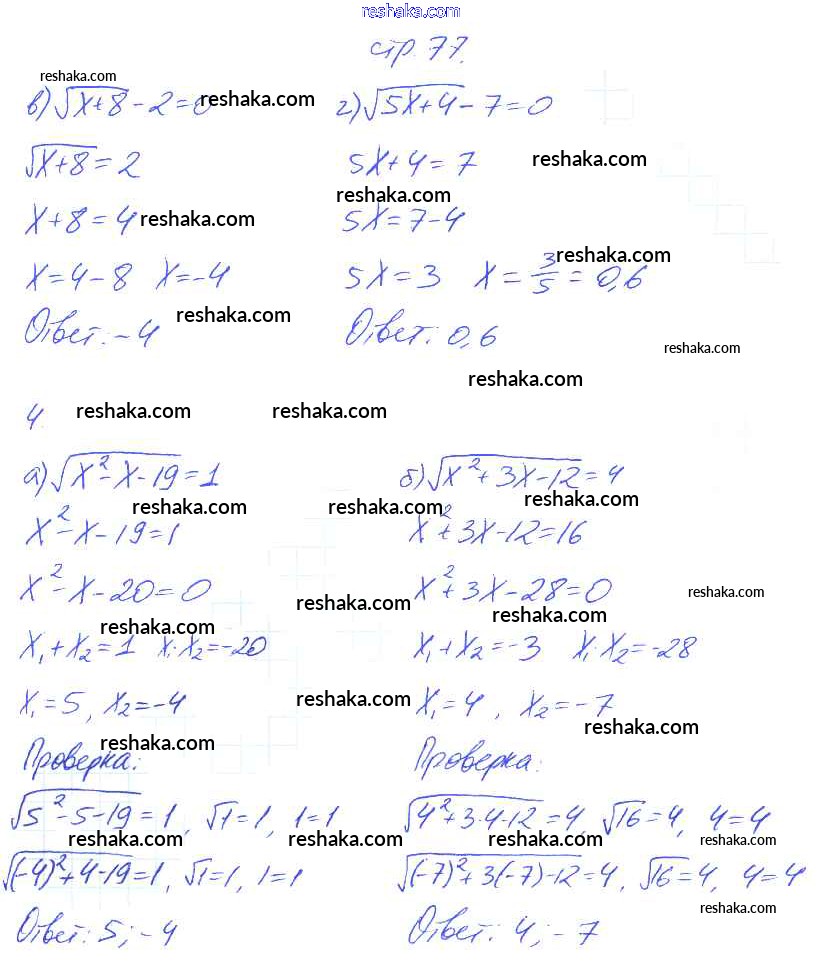 reshaka.com
стр. 77.
reshaka.com
в) √(x+8) - 2 = 0 reshaka.com г) √(5x+4) - 7 = 0
√(x+8) = 2 5x+4 = 7 reshaka.com
reshaka.com
x+8 = 4 reshaka.com 5x = 7-4
reshaka.com
x = 4-8 x = -4 5x = 3 x = 3/5 = 0,6
Ответ: -4 reshaka.com Ответ: 0,6
reshaka.com
reshaka.com
4. reshaka.com reshaka.com
а) √(x²-x-19) = 1 б) √(x²+3x-12) = 4
reshaka.com reshaka.com reshaka.com
x²-x-19 = 1 x²+3x-12 = 16
x²-x-20 = 0 x²+3x-28 = 0 reshaka.com
reshaka.com reshaka.com reshaka.com
x₁+x₂ = 1 x₁·x₂ = -20 x₁+x₂ = -3 x₁·x₂ = -28
x₁ = 5, x₂ = -4 reshaka.com x₁ = 4, x₂ = -7
reshaka.com reshaka.com
Проверка: Проверка:
√(5²-5-19) = 1, √1 = 1, 1 = 1 √(4²+3·4-12) = 4, √16 = 4, 4 = 4
reshaka.com reshaka.com reshaka.com reshaka.com
√((-4)²+4-19) = 1, √1 = 1, 1 = 1 √((-7)²+3(-7)-12) = 4, √16 = 4, 4 = 4
reshaka.com
Ответ: 5; -4 Ответ: 4; -7